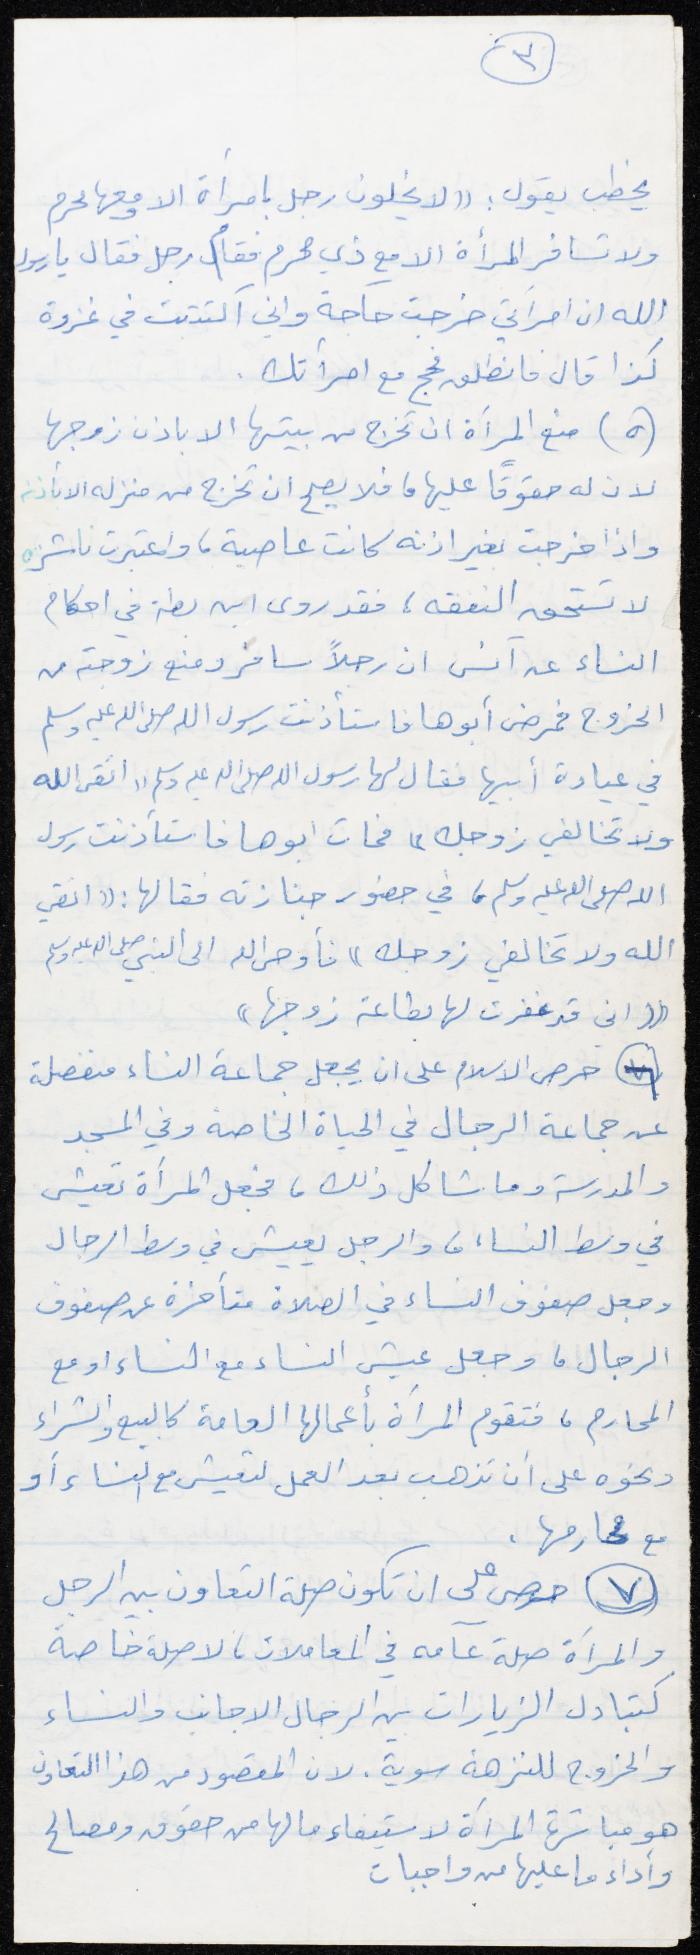 ٣
يخطب يقول: «لا يخلون رجل بامرأة الا ومعها محرم
ولا تسافر المرأة الا مع ذي محرم فقام رجل فقال يا رسول
الله ان امرأتي خرجت حاجة واني اكتتبت في غزوة
كذا قال فانطلق فحج مع امرأتك .
(٥) منع المرأة ان تخرج من بيتها الا باذن زوجها
لان له حقوقًا عليها، فلا يصح ان تخرج من منزله الا بأذنه
واذا خرجت بغير اذنه كانت عاصية، واعتبرت ناشزه
لا تستحق النفقه، فقد روى ابن بطة في احكام
النساء عن أنس ان رجلاً سافر ومنع زوجته من
الخروج فمرض أبوها فاستأذنت رسول الله صلى الله عليه وسلم
في عيادة أبيها فقال لها رسول الله صلى الله عليه وسلم «اتقي الله
ولا تخالفي زوجك» فمات ابوها فاستأذنت رسول
الله صلى الله عليه وسلم، في حضور جنازته فقالها: «اتقي
الله ولا تخالفي زوجك» فأوحى الله الى النبي صلى الله عليه وسلم
«اني قد غفرت لها بطاعة زوجها»
حرص الاسلام على ان يجعل جماعة النساء منفصلة
عن جماعة الرجال في الحياة الخاصة وفي المسجد
والمدرسة وما شاكل ذلك، فجعل المرأة تعيش
في وسط النساء، والرجل يعيش في وسط الرجال
وجعل صفوف النساء في الصلاة متأخرة عن صفوف
الرجال، وجعل عيش النساء مع النساء او مع
المحارم، فتقوم المرأة بأعمالها العامة كالبيع والشراء
ونحوه على أن تذهب بعد العمل لتعيش مع النساء أو
مع محارمها.
(٧) حرص على ان تكون صلة التعاون بين الرجل
والمرأة صلة عامه في المعاملات، لا صلة خاصة
كتبادل الزيارات بين الرجال الاجانب والنساء
والخروج للنزهة سوية. لان المقصود من هذا التعاون
هو مباشرة المرأة لاستيفاء ما لها من حقوق ومصالح
وأداء ما عليها من واجبات